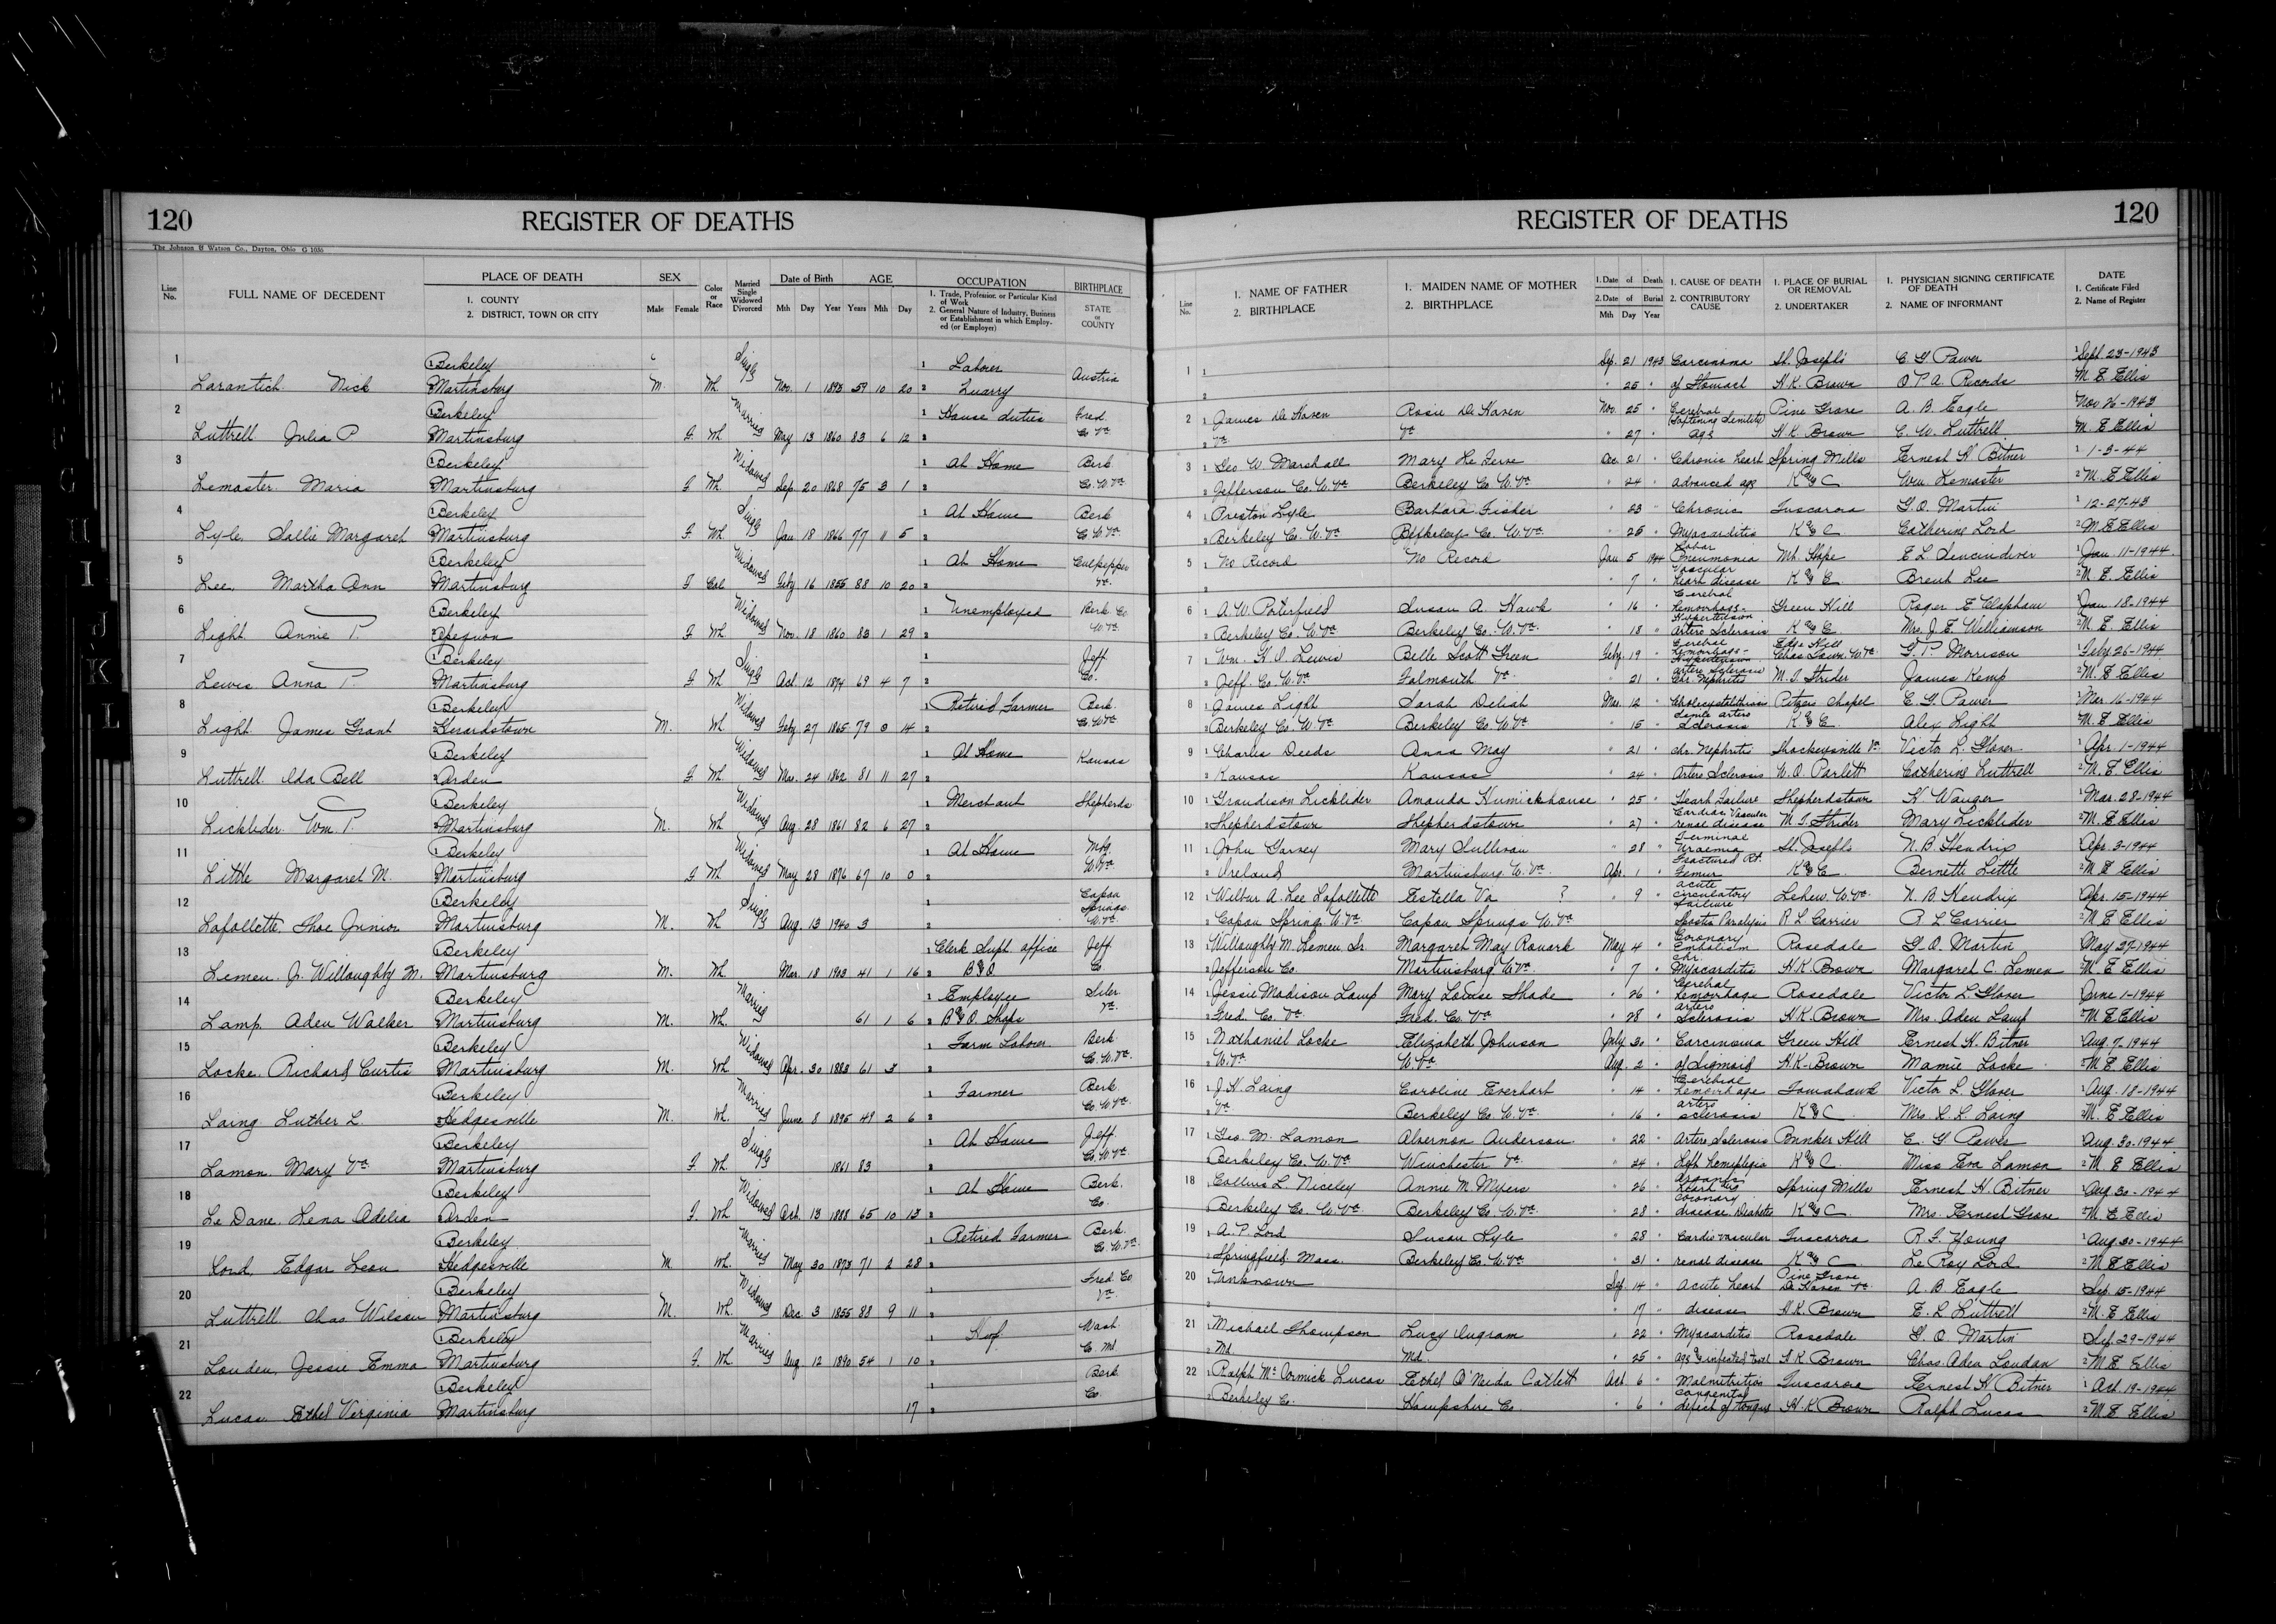 120
REGISTER OF DEATHS
The Johnson & Watson Co., Dayton, Ohio G 1036
Line No.
FULL NAME OF DECEDENT
PLACE OF DEATH
1. COUNTY
2. DISTRICT, TOWN OR CITY
SEX
Male Female
Color or Race
Married Single Widowed Divorced
Date of Birth
Mth Day Year
AGE
Years Mth Day
OCCUPATION
1. Trade, Profession or Particular Kind of Work
2. General Nature of Industry, Business or Establishment in which Employed (or Employer)
BIRTHPLACE
STATE or COUNTY
1 Berkeley Single 1 Laborer Austria
Larantich Nick 2 Martinsburg M. Wh. Nov. 1 1893 59 10 20 2 Quarry
2 1 Berkeley Married 1 House duties Fred.
Luttrell Julia P 2 Martinsburg F. Wh May 13 1860 83 6 12 2 Co Va
3 1 Berkeley Widowed 1 At Home Berk
Lemaster Maria 2 Martinsburg F Wh. Sep. 20 1868 75 3 1 2 Co. W.Va
4 1 Berkeley Single 1 At Home Berk
Lyle, Sallie Margaret 2 Martinsburg F. Wh. Jan 18 1866 77 11 5 2 Co W.Va
5 1 Berkeley Widowed 1 At Home Culpepper
Lee, Martha Ann 2 Martinsburg F Col Feby 16 1855 88 10 20 2 Va.
6 1 Berkeley Widowed 1 Unemployed Berk Co.
Light Annie P. 2 Opequon F Wh Nov. 18 1860 83 1 29 2 W.Va.
7 1 Berkeley Single 1 Jeff.
Lewis Anna P. 2 Martinsburg F Wh Oct. 12 1874 69 4 7 2 Co.
8 1 Berkeley Widowed 1 Retired Farmer Berk.
Light James Grant 2 Gerardstown M. Wh Feby 27 1865 79 0 14 2 Co W.Va
9 1 Berkeley Widowed 1 At Home Kansas
Luttrell Ida Bell 2 Arden F Wh Mar. 24 1862 81 11 27 2
10 1 Berkeley Widowed 1 Merchant Shepherds
Licklider Wm. P. 2 Martinsburg M. Wh Aug. 28 1861 82 6 27 2
11 1 Berkeley Widowed 1 At Home Mtg.
Little Margaret M. 2 Martinsburg F Wh May 28 1876 67 10 0 2 W.Va
12 Berkeley Single 1 Capon Springs
Lafollette, Thoe Junior Martinsburg M. Wh Aug. 13 1940 3 2 W.Va
13 Berkeley 1 Clerk Supt. office Jeff
Lemen Jr. Willoughby M. Martinsburg M. Wh. Mar. 18 1903 41 1 16 2 B&O Co
14 Berkeley Married 1 Employee
Lamp, Aden Walker Martinsburg M. Wh. 61 1 6 2 B&O. Shops Va.
15 Berkeley Widowed 1 Farm Laborer Berk
Locke Richard Curtis Martinsburg M. Wh Apr. 30 1883 61 3 2 Co. W.Va.
16 Berkeley Married 1 Farmer Berk.
Laing Luther L. Hedgesville M. Wh. June 8 1895 49 2 6 2 Co W.Va.
17 Berkeley Single 1 At Home Jeff.
Lamon Mary Va Martinsburg F. Wh. 1861 83 2 Co. W.Va
18 Berkeley Widowed 1 At Home Berk.
Le Dane, Lena Adelia Arden F. Wh Oct. 13 1888 65 10 13 2 Co.
19 Berkeley Married 1 Retired Farmer Berk.
Lord, Edgar Leon Hedgesville M. Wh. May 30 1873 71 2 28 2 Co. W.Va.
20 Berkeley Widowed 1 Fred. Co
Luttrell Chas Wilson Martinsburg M. Wh. Dec. 3 1855 88 9 11 2 Va.
21 Berkeley Married 1 Wash.
Louden, Jessie Emma Martinsburg F. Wh. Aug 12 1890 54 1 10 2 Co. Md
22 Berkeley 1 Berk
Lucas Ethel Virginia Martinsburg 17 2 Co
REGISTER OF DEATHS
120
Line No.
1. NAME OF FATHER
2. BIRTHPLACE
1. MAIDEN NAME OF MOTHER
2. BIRTHPLACE
1. Date of Death
2. Date of Burial
Mth Day Year
1. CAUSE OF DEATH
2. CONTRIBUTORY CAUSE
1. PLACE OF BURIAL OR REMOVAL
2. UNDERTAKER
1. PHYSICIAN SIGNING CERTIFICATE OF DEATH
2. NAME OF INFORMANT
DATE
1. Certificate Filed
2. Name of Register
1 1 Sep. 21 1943 Carcinoma St. Joseph's C G Power Sept 23-1943
2 " 25 " of Stomach H.K. Brown O P A. Records M. E Ellis
2 1 James De Haven Rosie De Haven Nov. 25 " Cerebral Softening Senility Pine Grove A. B. Eagle Nov 26-1943
2 Va. Va " 27 " age H.K. Brown C. W. Luttrell M. E Ellis
3 1 Geo W. Marshall Mary Le Ferre Dec. 21 " Chronic heart Spring Mills Ernest H Bitner 1-3-44
2 Jefferson Co. W.Va Berkeley Co W.Va " 24 " advanced age K & C Wm. Lemaster M. E Ellis
4 1 Preston Lyle Barbara Fisher " 23 " Chronic Tuscarora G. O. Martin 12-27-43
2 Berkeley Co. W.Va Berkeley Co. W.Va. " 25 " Myocarditis K & C Catherine Lord M. E Ellis
5 1 No Record No Record Jan 5 1944 Lobar Pneumonia Mt. Hope E L Sencindiver Jan 11-1944
2 " 7 " Vascular heart disease K & C Brent Lee M. E. Ellis
6 1 A. W. Porterfield Susan A. Hawk " 16 " Cerebral hemorrhage- Green Hill Roger E Clapham Jan 18-1944
2 Berkeley Co. W.Va Berkeley Co. W.Va. " 18 " Hypertension Artero Sclerosis K & C Mrs. J. E. Williamson M. E. Ellis
7 1 Wm. H. I Lewis Belle Scott Green Feby. 19 " Cerebral hemorrhage- Hypertension Edge Hill Chas Town W.Va G. P. Morrison Feby 26-1944
2 Jeff. Co W.Va Falmouth Va. " 21 " artero Sclerosis Chr. Nephritis M. T. Strider James Kemp M. E Ellis
8 1 James Light Sarah Deliah Mar. 12 " Cholecystolithiasis Pitzers Chapel C. G. Power Mar 16-1944
2 Berkeley Co. W.Va Berkeley Co W.Va " 15 " Senile artero Sclerosis K & C Alex Light M. E Ellis
9 1 Charles Deeds Anna May " 21 " chr. Nephritis Shockeysville Va Victor L. Glover Apr. 1-1944
2 Kansas Kansas " 24 " Artero Sclerosis W. O. Parlett Catherine Luttrell M. E Ellis
10 1 Grandison Licklider Amanda Humickhouse " 25 " Heart Failure Shepherdstown H Wanger Mar. 28-1944
2 Shepherdstown Shepherdstown " 27 " Cardiac Vascular renal disease M. T. Strider Mary Licklider M. E Ellis
11 1 John Garvey Mary Sullivan " 28 " Terminal Uraemia St. Josephs N. B. Hendrix Apr. 3-1944
2 Ireland Martinsburg W.Va. Apr. 1 " Fractured Rt. Femur K & C Bernette Little M E Ellis
12 1 Wilbur A. Lee Lafollette Estella Va ? " 9 " acute circulatory failure Lehew W.Va. N. B. Hendrix Apr. 15-1944
2 Capon Springs W.Va. Capon Springs W.Va " Spastic Paralysis R. L. Carrier R. L Carrier M. E Ellis
13 1 Willoughby M. Lemen Sr. Margaret May Rouark May 4 " Coronary Embolism Rosedale G. O. Martin May 27-1944
2 Jefferson Co. Martinsburg W.Va. " 7 " chr. Myocarditis H.K. Brown Margaret C. Lemen M. E Ellis
14 1 Jessie Madison Lamp Mary Louise Shade " 26 " Cerebral hemorrhage Rosedale Victor L. Glover June 1-1944
2 Fred. Co. Va. Fred. Co. Va " 28 " artero Sclerosis H.K. Brown Mrs. Aden Lamp M E Ellis
15 1 Nathaniel Locke Elizabeth Johnson July 30 " Carcinoma Green Hill Ernest H. Bitner Aug. 7. 1944
2 W.Va. W.Va Aug. 2 " of Sigmoid H.K. Brown Mamie Locke M. E Ellis
16 1 J. H. Laing Caroline Everhart " 14 " Cerebral hemorrhage Tomahawk Victor L. Glover Aug. 18-1944
2 Va. Berkeley Co. W.Va. " 16 " artero sclerosis K & C Mrs. L. L. Laing M. E Ellis
17 1 Geo. M. Lamon Alvernon Anderson " 22 " Artero Sclerosis Bunker Hill C. G Power Aug. 30-1944
Berkeley Co. W.Va. Winchester Va. " 24 " Left hemiplegia K & C. Miss Eva Lamon M E Ellis
18 1 Collins L. Niceley Annie M. Myers " 26 " Organic heart dis Spring Mills Ernest H Bitner Aug. 30-1944
Berkeley Co. W.Va Berkeley Co W.Va. " 28 " coronary disease Diabetes K & C Mrs. Ernest Grove M. E Ellis
19 1 A. P. Lord Susan Lyle " 28 " Cardio vascular Tuscarora R. F. Young Aug. 30-1944
2 Springfield Mass. Berkeley Co. W.Va " 31 " renal disease K & C Le Roy Lord M E Ellis
20 1 Unknown Sep. 14 " Acute heart Pine Grove De Haven Va. A. B Eagle Sep. 15-1944
2 " 17 " disease H.K. Brown E. L Luttrell M. E Ellis
21 1 Michael Thompson Lucy Ingram " 22 " Myocarditis Rosedale G. O. Martin Sep. 29-1944
2 Md. Md. " 25 " H.K. Brown Chas. Aden Loudan M E Ellis
22 1 Ralph Mc Cormick Lucas Ethel O'Neida Catlett Oct. 6 " Malnutrition Tuscarora Ernest H Bitner Oct. 19-1944
2 Berkeley Co. Hampshire Co " 6 " congenital defect of tongue H.K. Brown Ralph Lucas M. E Ellis
G
H
I
J
K
L